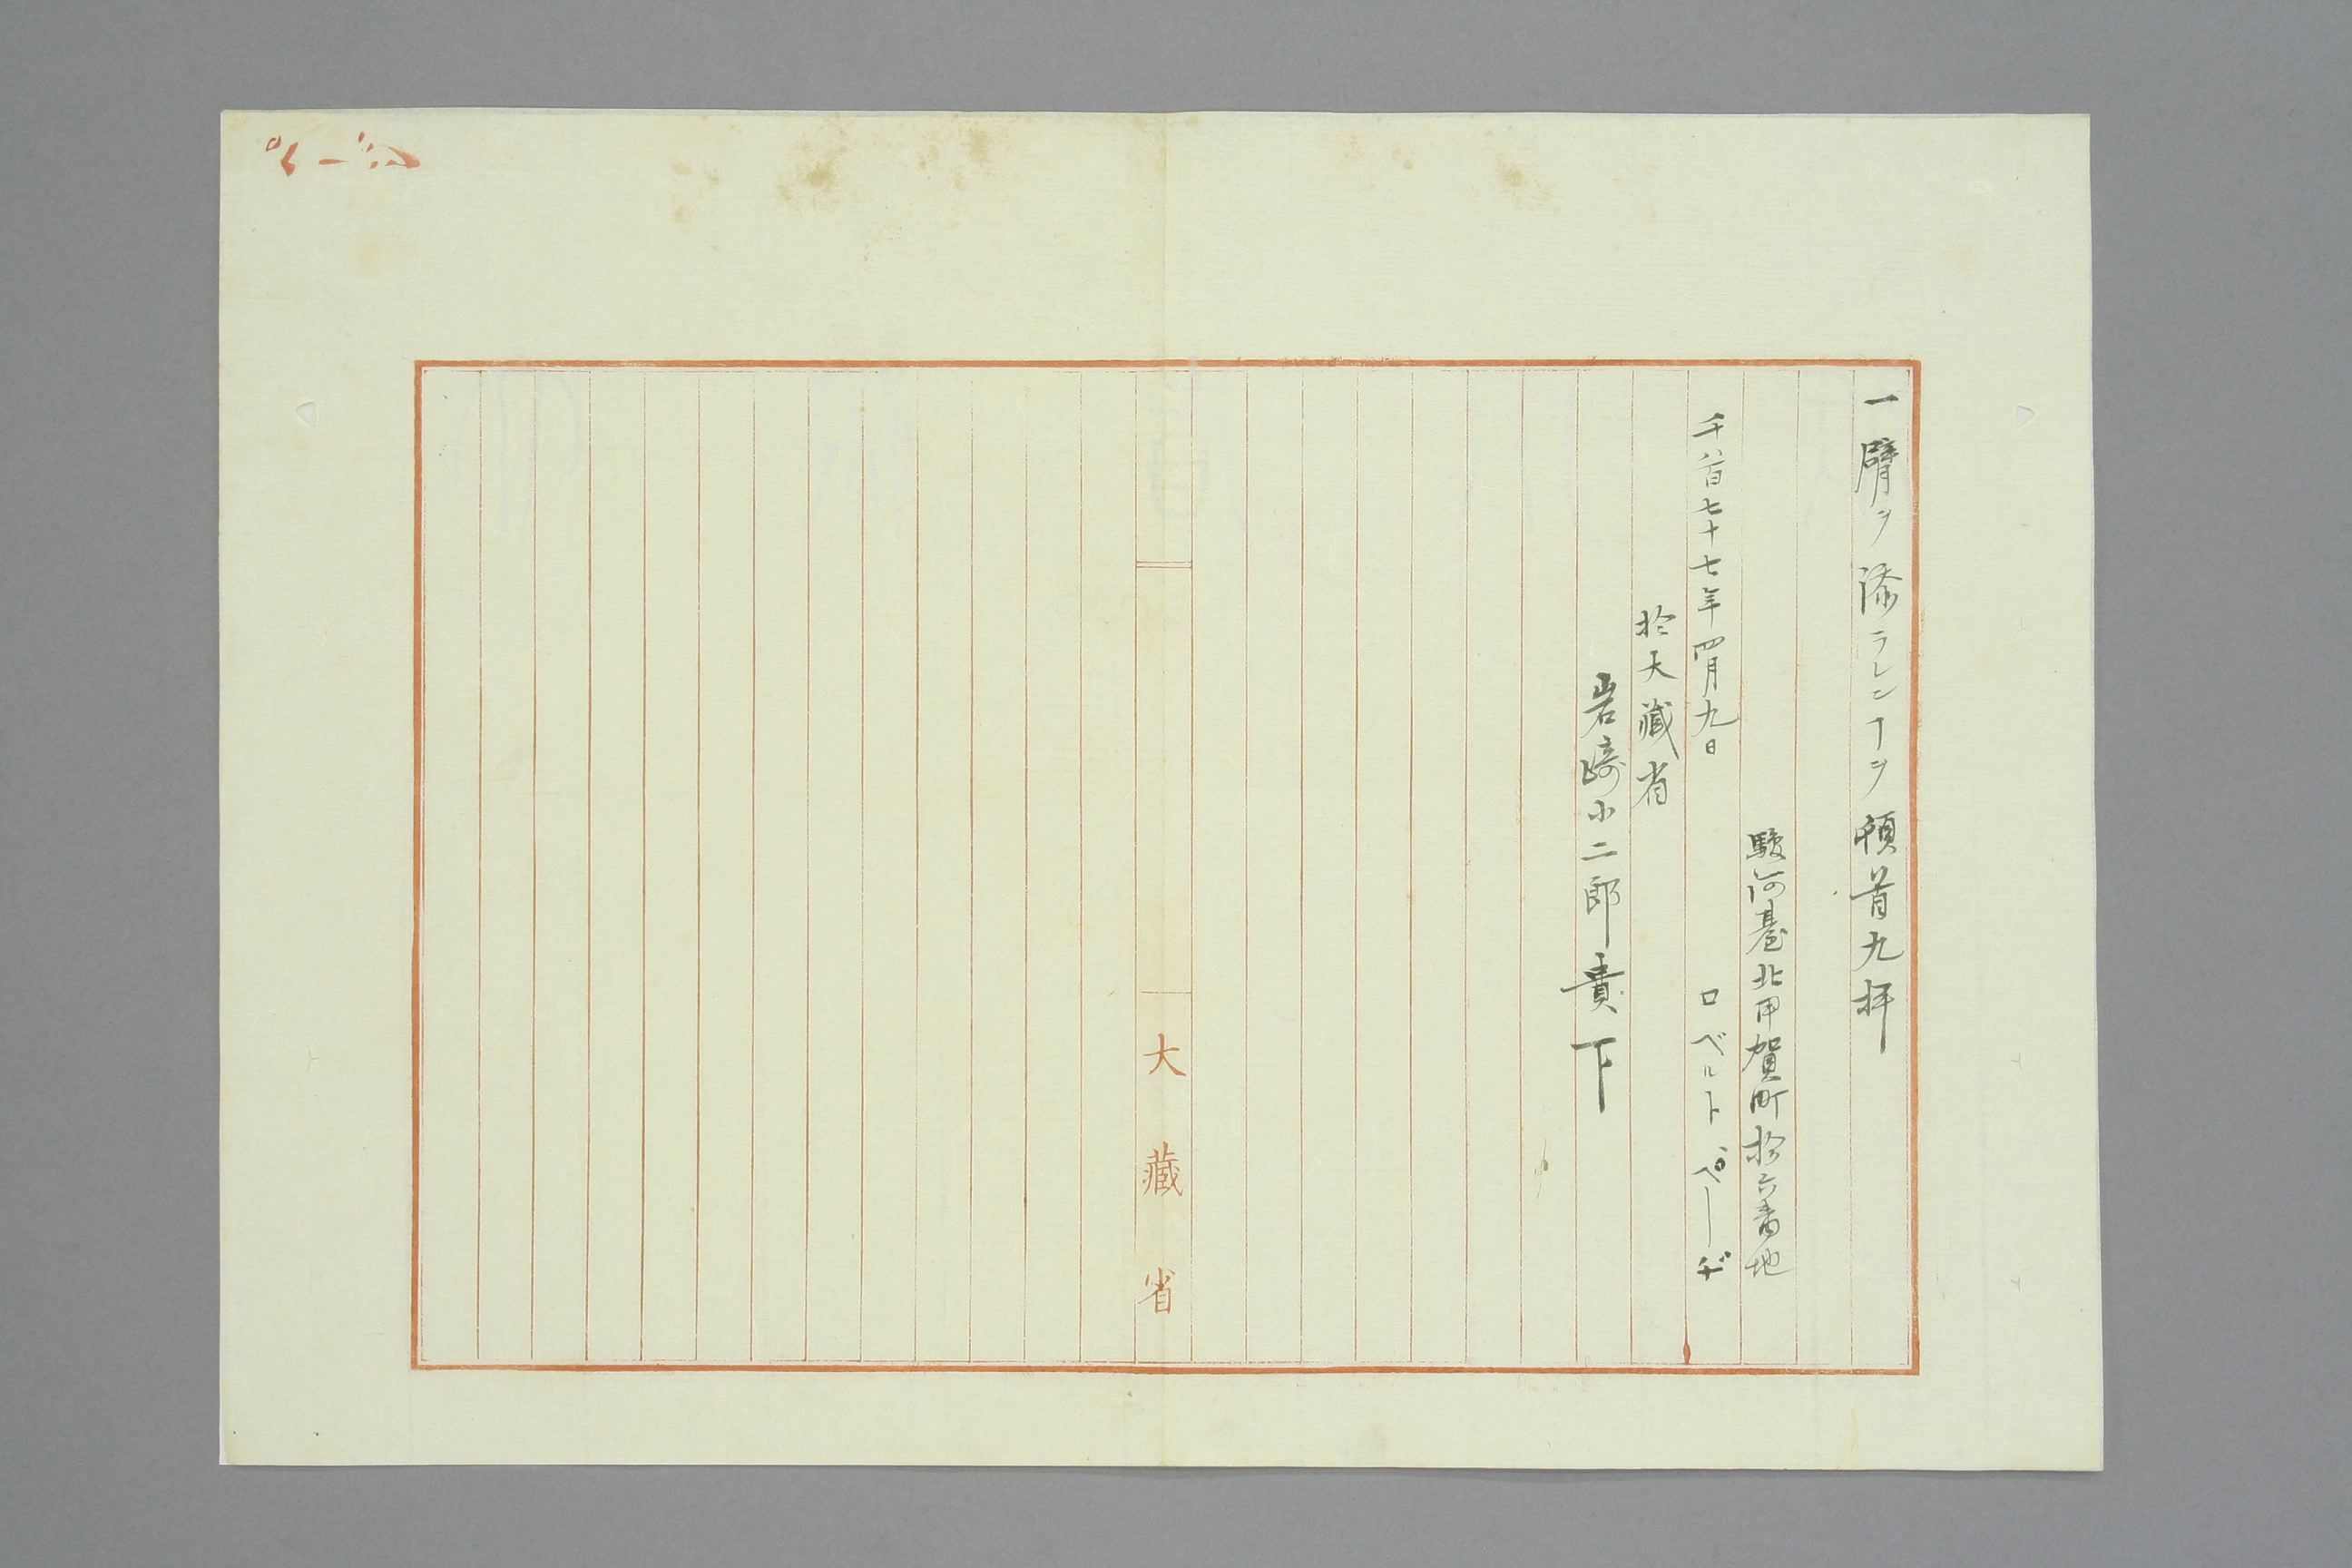 一臂ヲ添ラレンヿヲ頓首九拝
駿河臺北甲賀町拾六番地
ロベルトペーヂ
千八百七十七年四月九日
於大藏省
岩崎小二郎貴下
大藏省